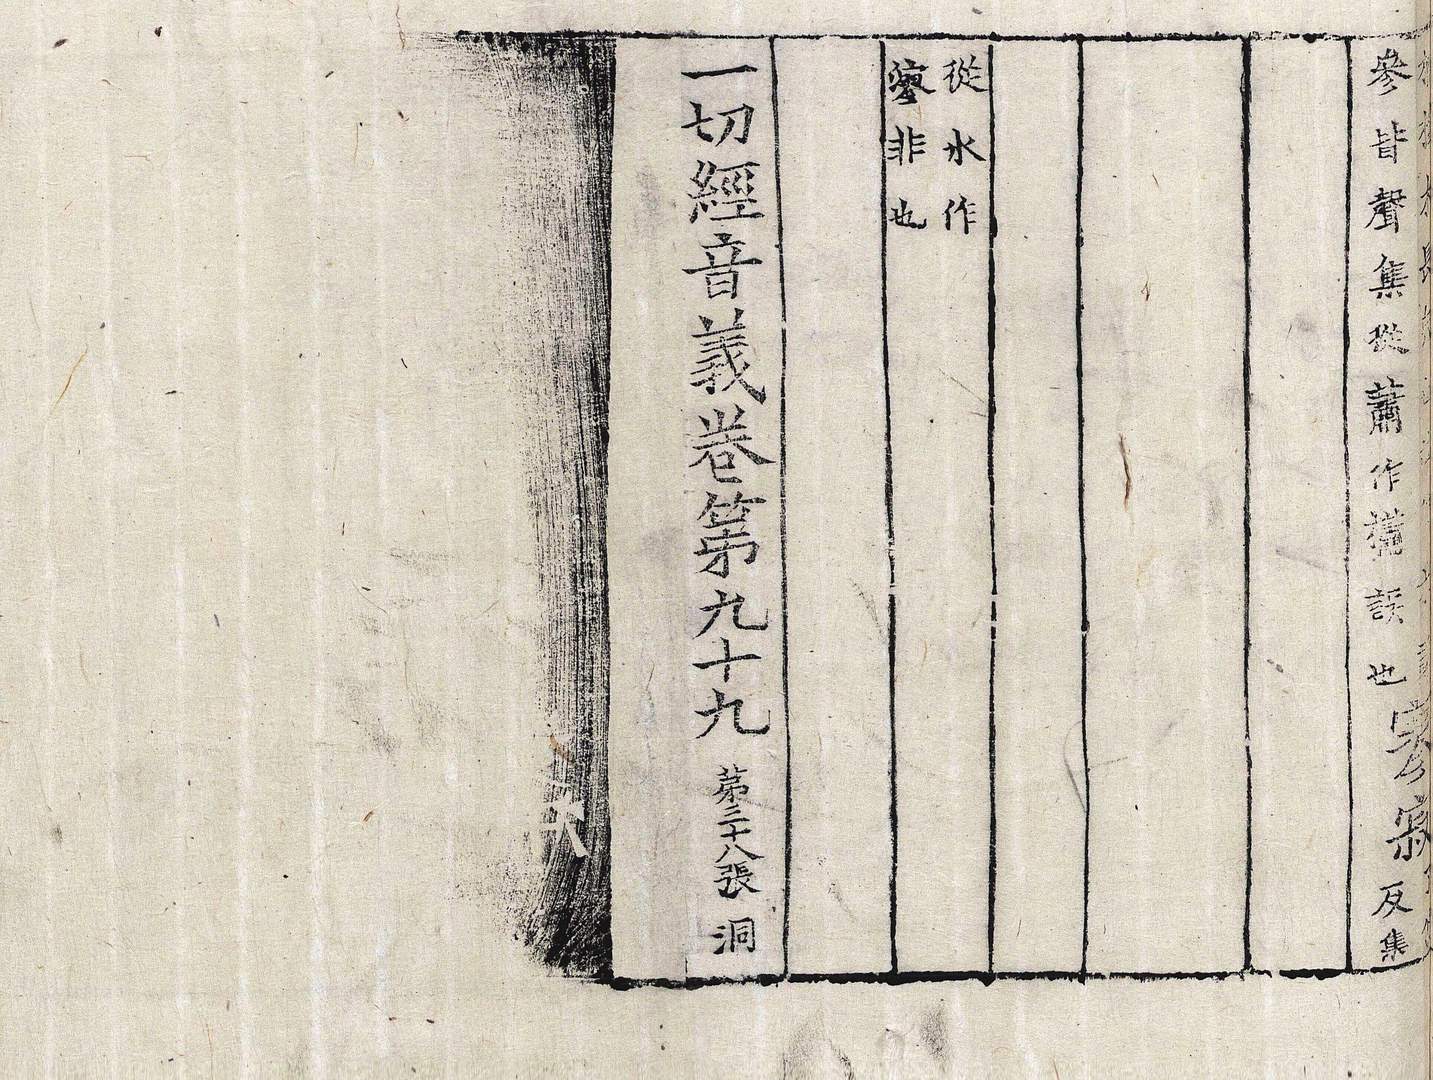 參皆聲集從蕭作𣝕誤也寥寂反集
從水作
寥非也
一切經音義卷第九十九 第三十八張 洞